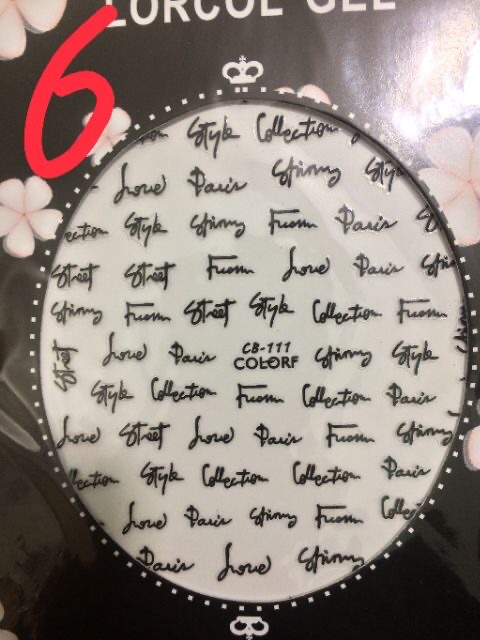 LORCOL GEL
6
Style Collection
Love Paris Shinny Style
ection Style Shinny From Paris S
Street Street From Love Paris Shin
Shinny From Street Style Collection From
Street Love Paris CB-111 COLORF Shinny Style
Style Collection From Collection Paris
Love Street Love Paris From Shinny
llection Style Collection Collection Paris
Love Paris Shinny From Colle
Paris Love Shinny